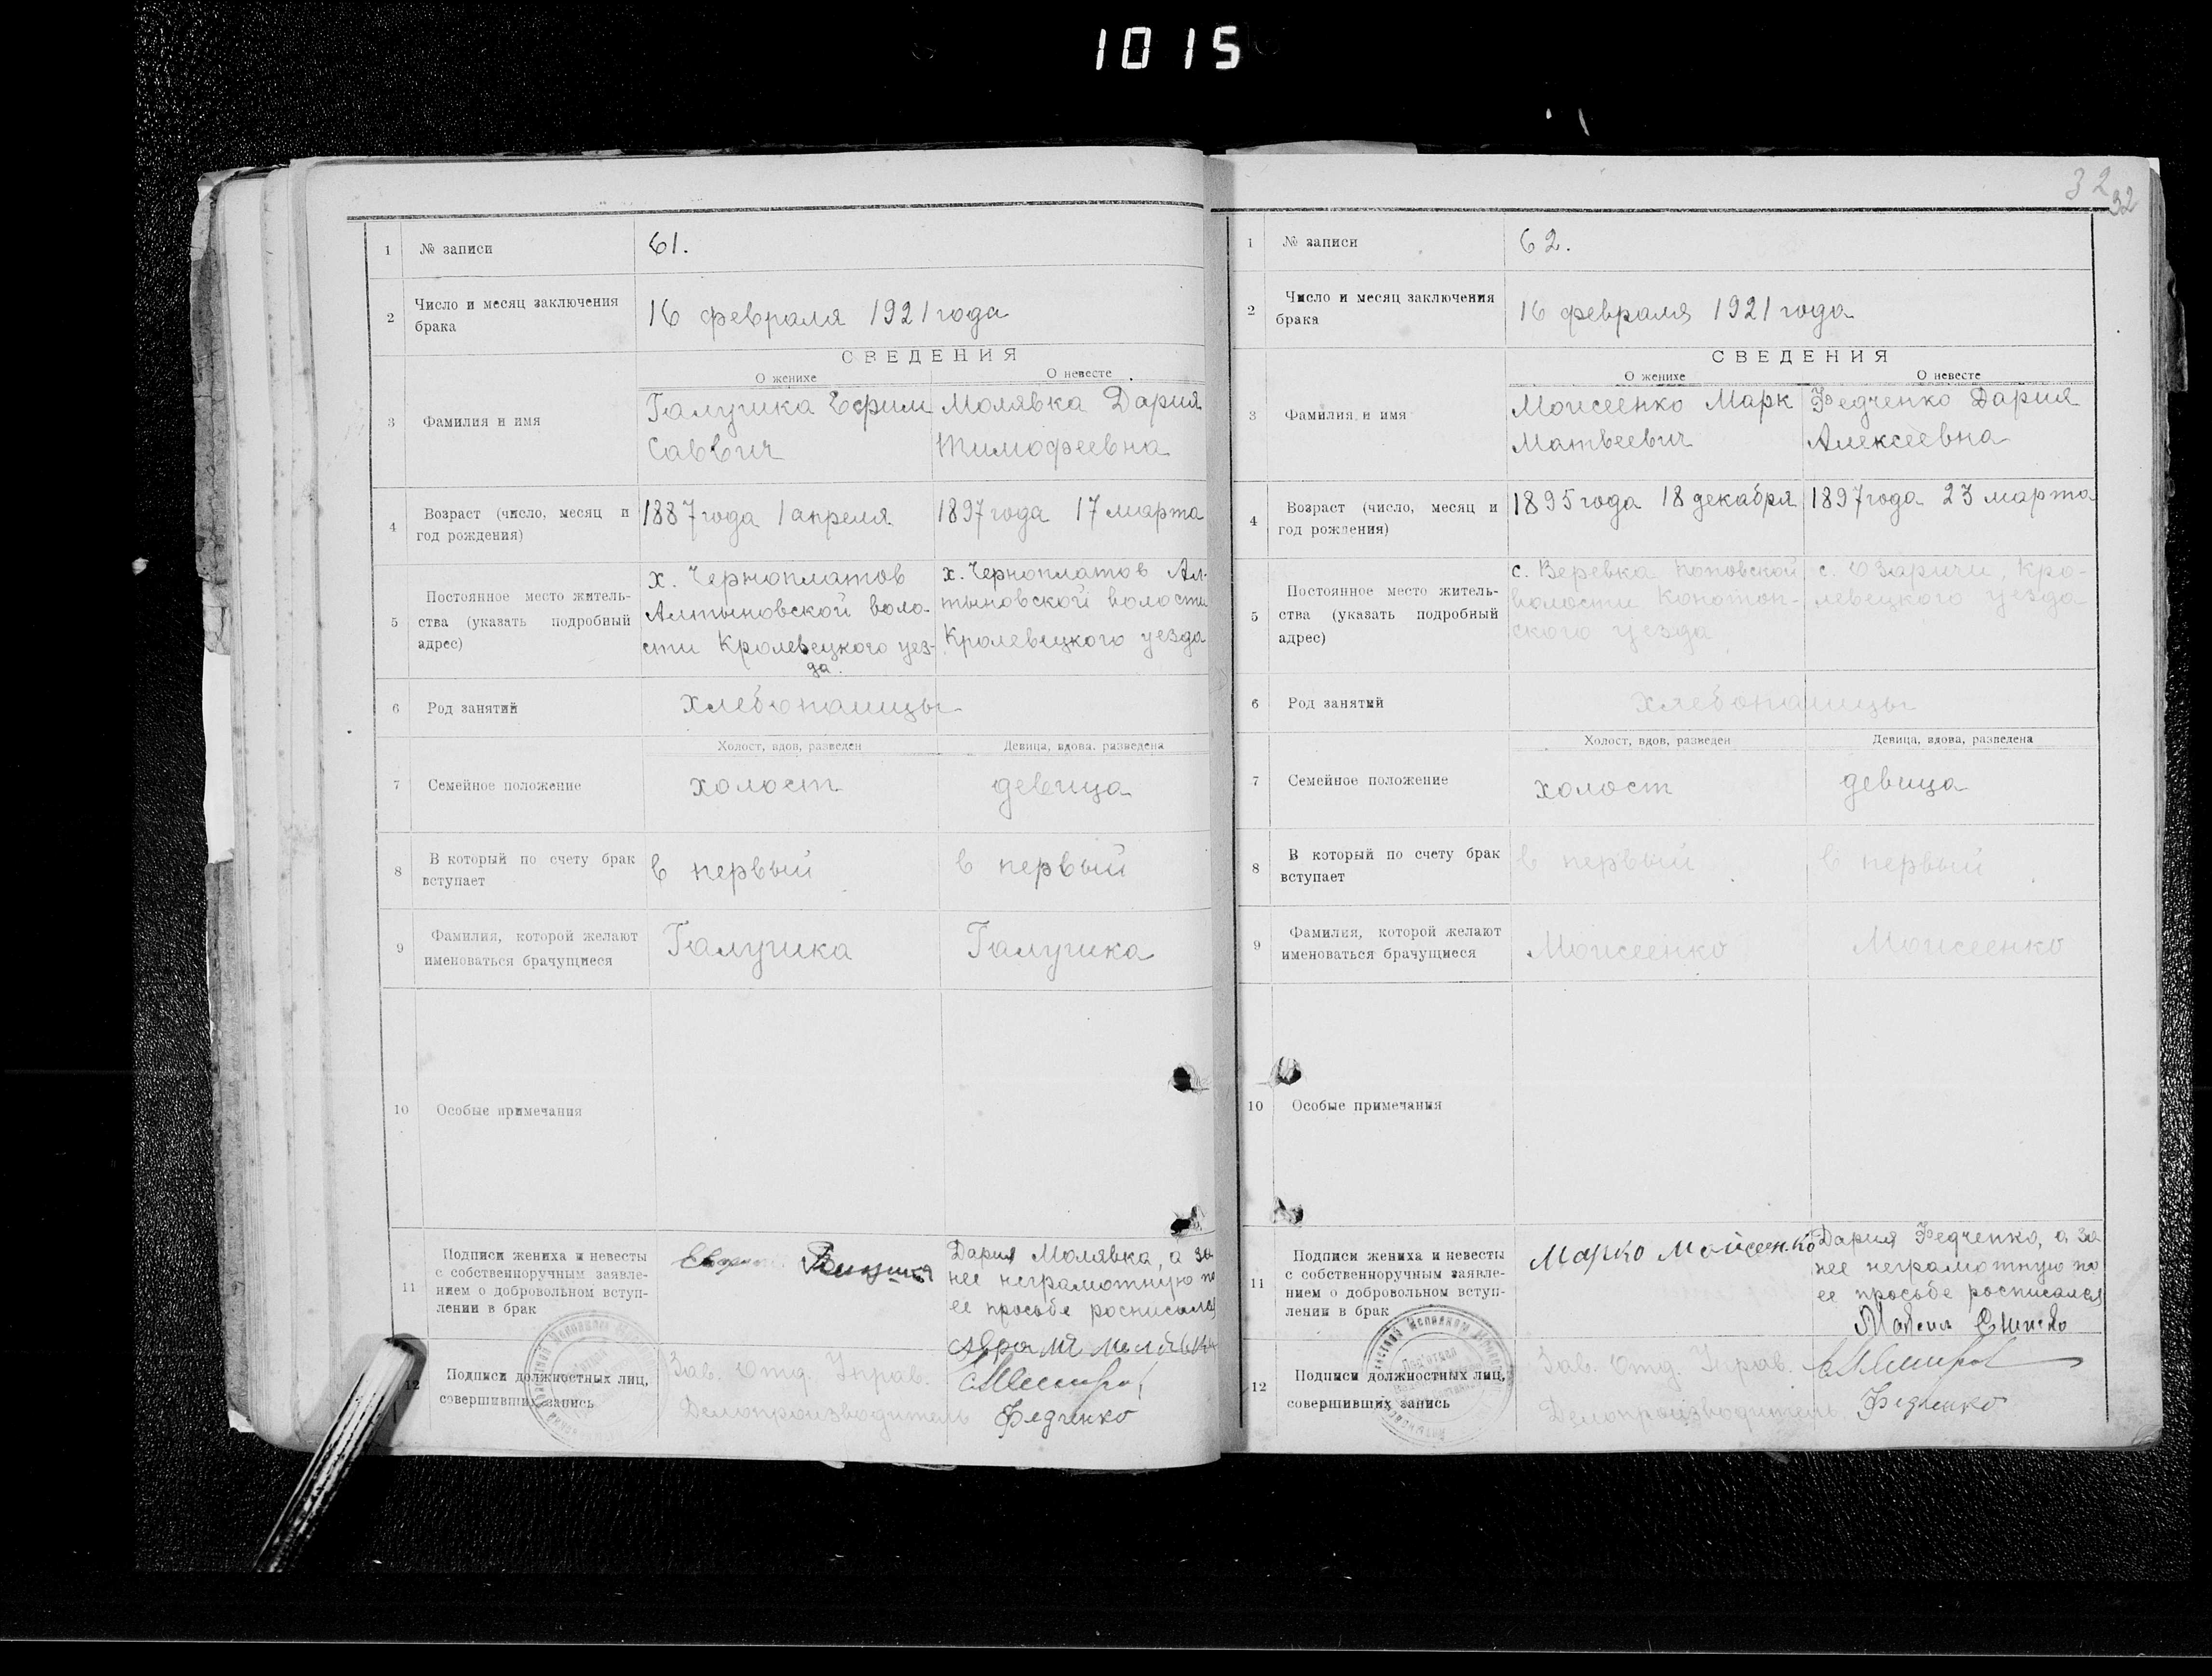 1015
1 № записи 61.
2 Число и месяц заключения
брака
16 февраля 1921 года
СВЕДЕНИЯ
О женихе О невесте
3 Фамилия и имя
Галушка Ефим
Саввич
Молявка Дария
Тимофеевна
4 Возраст (число, месяц и
год рождения)
1887 года 1 апреля
1897 года 17 марта
5 Постоянное место житель-
ства (указать подробный
адрес)
х. Черноплатов
Алтыновской воло-
сти Кролевецкого уез-
да.
х. Черноплатов Ал-
тыновской волости
Кролевецкого уезда
6 Род занятий
хлебопашцы
Холост, вдов, разведен Девица, вдова. разведена
7 Семейное положение
холост девица
8 В который по счету брак
вступает
в первый в первый
9 Фамилия, которой желают
именоваться брачущиеся
Галушка Галушка
10 Особые примечания
11 Подписи жениха и невесты
с собственноручным заявле-
нием о добровольном вступ-
лении в брак
Галушка
Дария Молявка, а за
нее неграмотную по
ее просьбе росписался
12 Подписи должностных лиц,
совершивших запись
Зав. Отд. Управ.
Делопроизводитель Федченко
32
32
1 № записи 62.
2 Число и месяц заключения
брака
16 февраля 1921 года
СВЕДЕНИЯ
О женихе О невесте
3 Фамилия и имя
Моисеенко Марк
Матвеевич
Федченко Дария
Алексеевна
4 Возраст (число, месяц и
год рождения)
1895 года 18 декабря
1897 года 23 марта
5 Постоянное место житель-
ства (указать подробный
адрес)
с. Веревка Поповской
волости Конотоп-
ского уезда
с. Озаричи, Кро-
левецкого уезда
6 Род занятий
хлебопашцы
Холост, вдов, разведен Девица, вдова, разведена
7 Семейное положение
холост девица
8 В который по счету брак
вступает
в первый в первый
9 Фамилия, которой желают
именоваться брачущиеся
Моисеенко Моисеенко
10 Особые примечания
11 Подписи жениха и невесты
с собственноручным заявле-
нием о добровольном вступ-
лении в брак
Марко Мойсеенко
Дария Федченко, а за
нее неграмотную по
ее просьбе росписался
12 Подписи должностных лиц,
совершивших запись
Зав. Отд. Управ.
Делопроизводитель Федченко